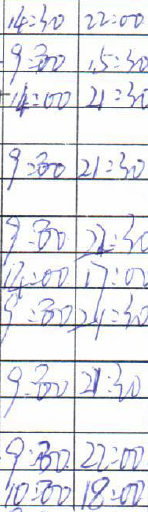 14:30 22:00
9:00 15:30
14:00 21:30
9:00 21:30
9:00 22:30
14:00 17:00
9:00 21:30
9:00 21:30
9:00 22:00
10:00 18:00